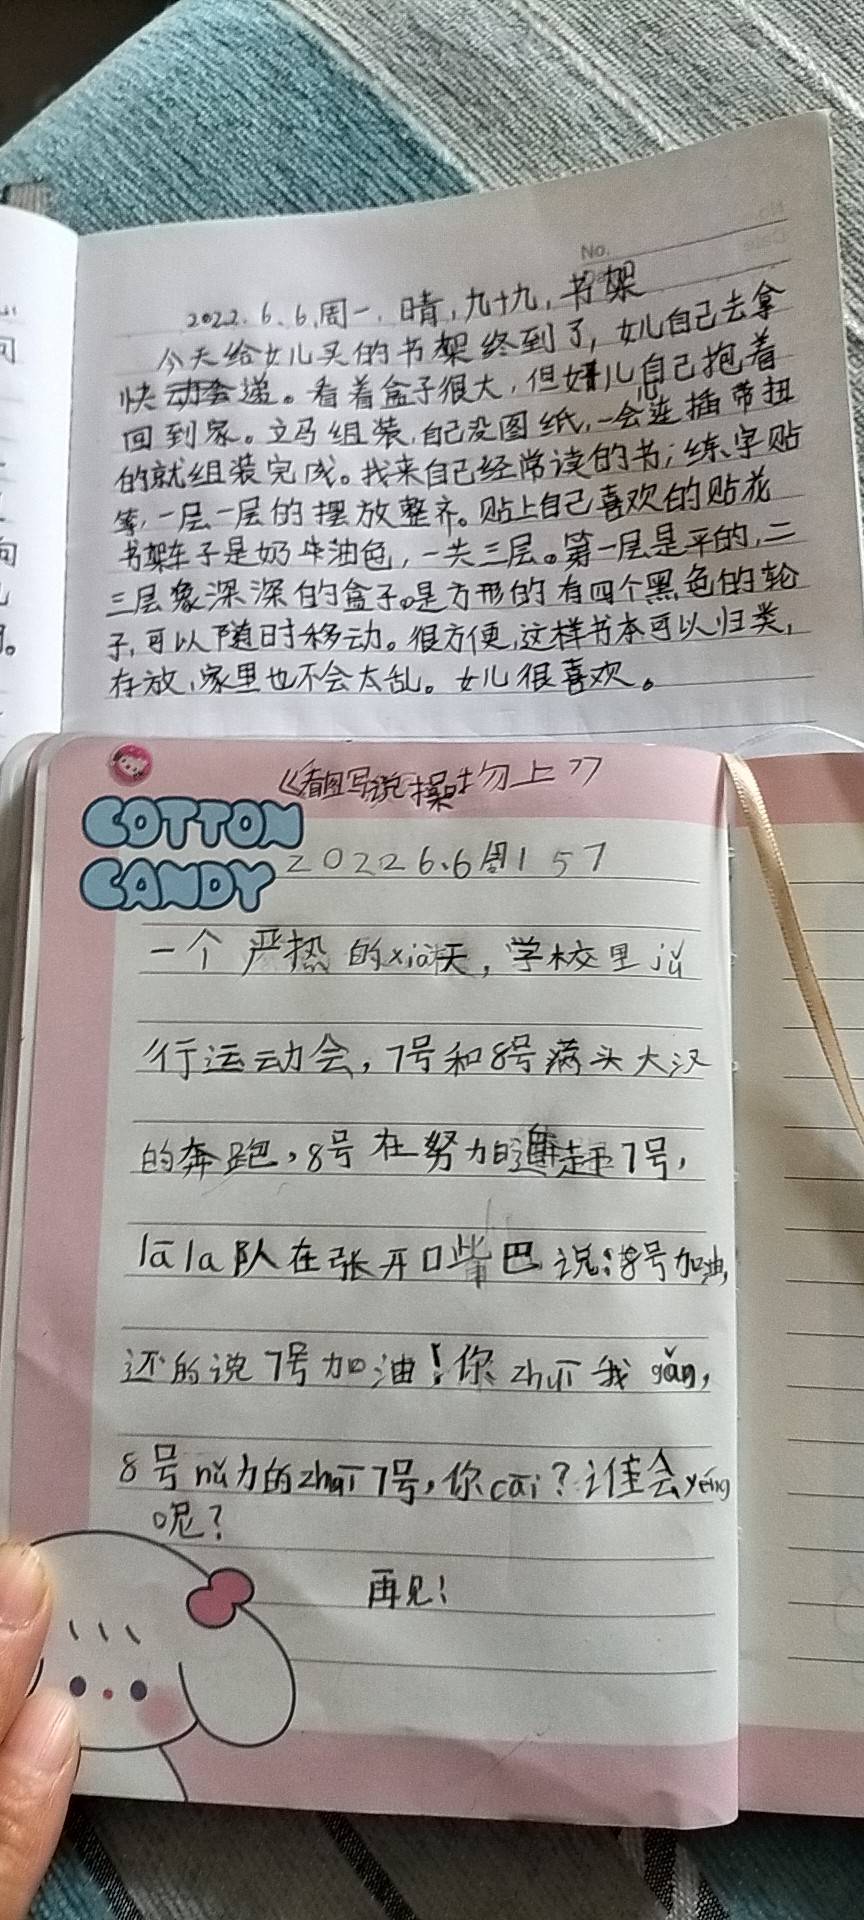 No.
2022.6.6,周一,晴,九十九,书架
今天给女儿买的书架终到了,女儿自己去拿
快递。看着盒子很大,但女儿自己抱着
回到家。立马组装,自己没图纸,一会连插带扭
的就组装完成。找来自己经常读的书;练字贴
等,一层一层的摆放整齐。贴上自己喜欢的贴花
书架车子是奶牛油色,一共三层。第一层是平的,二
三层象深深的盒子。是方形的有四个黑色的轮
子,可以随时移动。很方便,这样书本可以归类,
存放,家里也不会太乱。女儿很喜欢。
《看图写说操场上》
COTTON
CANDY
2022 6.6周1 57
一个严热的xià天,学校里jǔ
行运动会,7号和8号满头大汉
的奔跑,8号在努力的追赶7号,
lāla队在张开口嘴巴说:8号加油,
还的说7号加油!你zhuī我gǎn,
8号nǔ力的zhuī7号,你cāi?谁会yéng
呢?
再见!